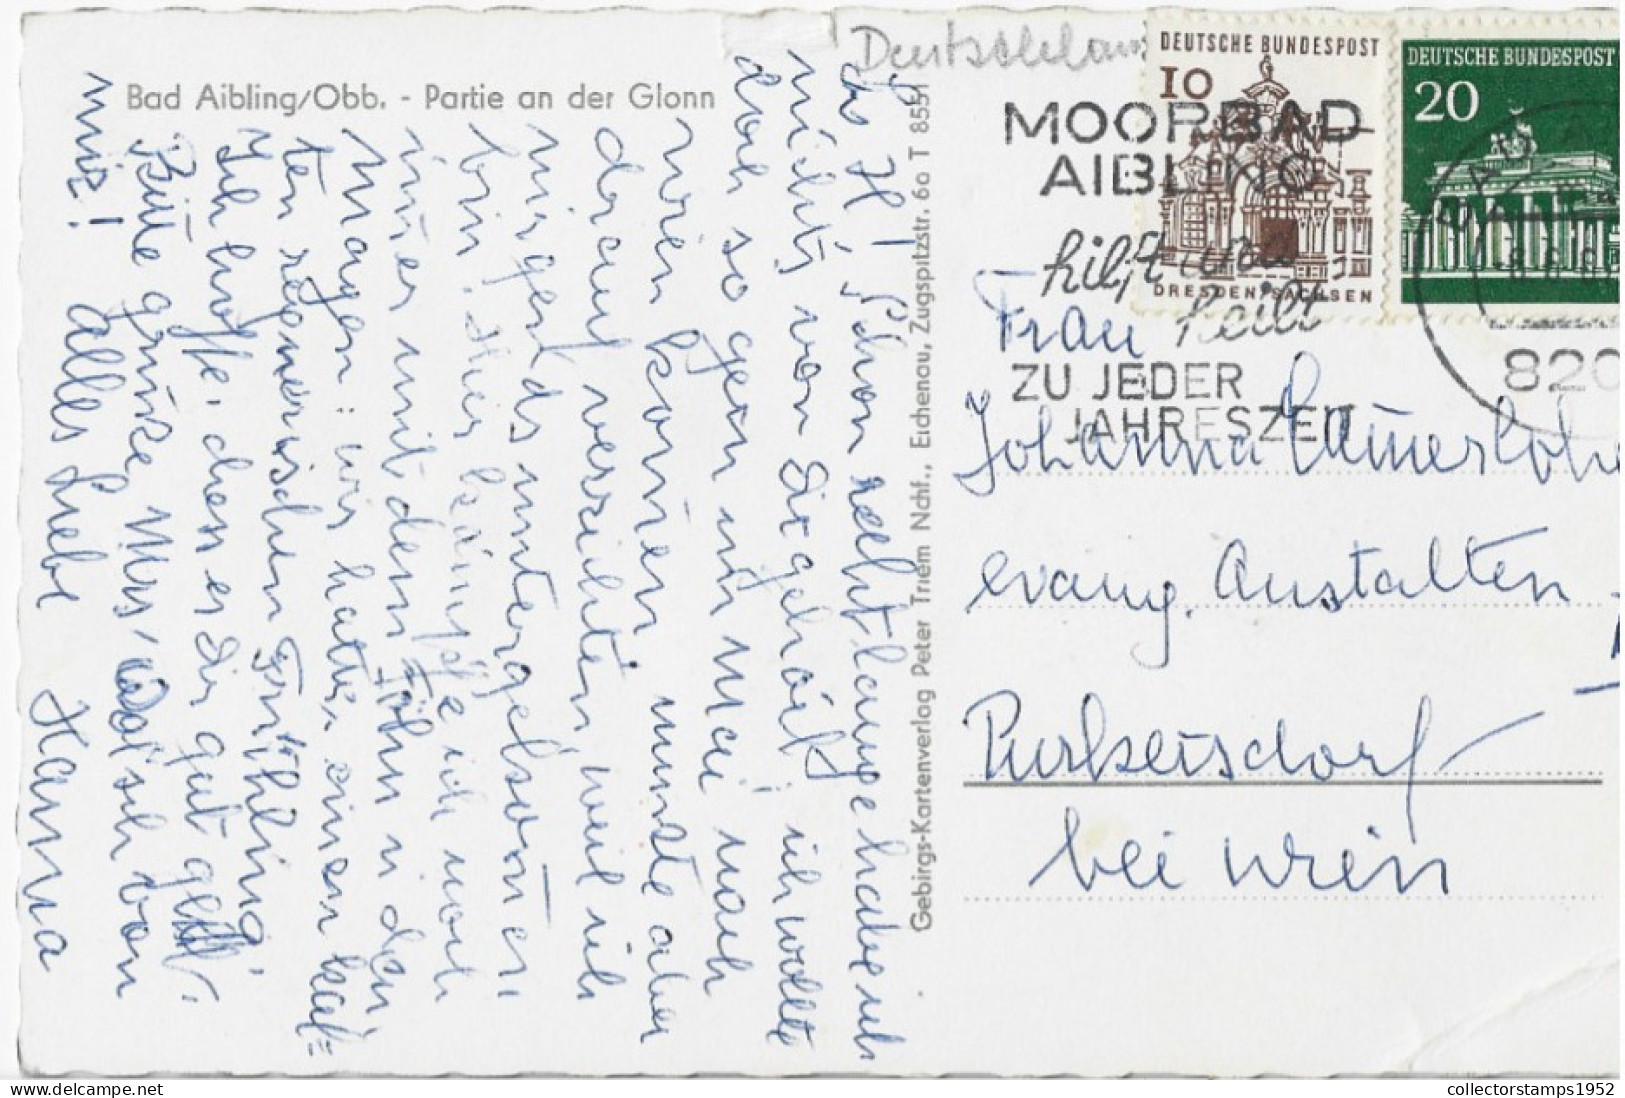 Deutschland
Bad Aibling/Obb. - Partie an der Glonn
Gebirgs-Kartenverlag Peter Triem Nchf., Eichenau, Zugspitzstr. 60 T 8551
DEUTSCHE BUNDESPOST
10
DRESDEN/SACHSEN
DEUTSCHE BUNDESPOST
20
MOORBAD
AIBLING
hilft und
heilt
ZU JEDER
JAHRESZEIT
820
Frau
Johanna
evang. Anstalten
Purkersdorf
bei Wien
H! Schon recht lange habe ich
nichts von Dir gehört, ich wollte
doch so gern im Mai nach
Wien kommen musste aber
darauf verzichten, weil ich
nirgends untergekommen
bin. Hier kämpfe ich noch
immer mit dem Föhn u. den
Magen: wir hatten einen kal=
ten regnerischen Frühling.
Ich hoffe, dass es Dir gut geht.
Bitte grüsse von
mir! Alles Liebe Hanna